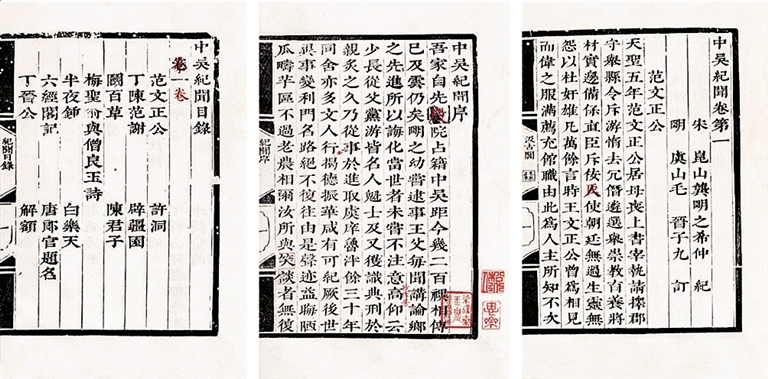 中吳紀聞目錄
第一卷
范文正公 許洞
丁陳范謝 辟疆園
國百草 陳君子
梅聖俞與僧良玉詩
半夜鐘 白樂天
六經閣記 唐郎官題名
丁晉公 解額
紀聞目錄
一
中吳紀聞序
吾家自先殿院占籍中吳距今幾二百禩相傳
已及雲仍矣明之幼嘗逮事王父每聞講論鄉
之先進所以誨化當世者未嘗不注意高仰云
少長從父黨游皆名人魁士及又獲識典刑於
親炙之久乃從事於進取虞庠魯泮餘三十年
同舍亦多文人行揭德振華咸有可紀厥後世
異事變利門名路絕不復往由是聲迹益晦陋
瓜疇芋區不過老農相爾汝所與笑談者無復
紀聞序
一
中吳紀聞卷第一
宋 崑山龔明之希仲 紀
明 虞山毛 晉子九 訂
范文正公
天聖五年范文正公居母喪上書宰執請擇郡
守舉縣令斥游惰去冗僭遴選舉崇敎育養將
材實邊備保直臣斥佞臣使朝廷無過生靈無
怨以杜奸雄凡萬餘言時王文正公曾爲相見
而偉之服滿薦充館職由此爲人主所知不次
汲古閣
一